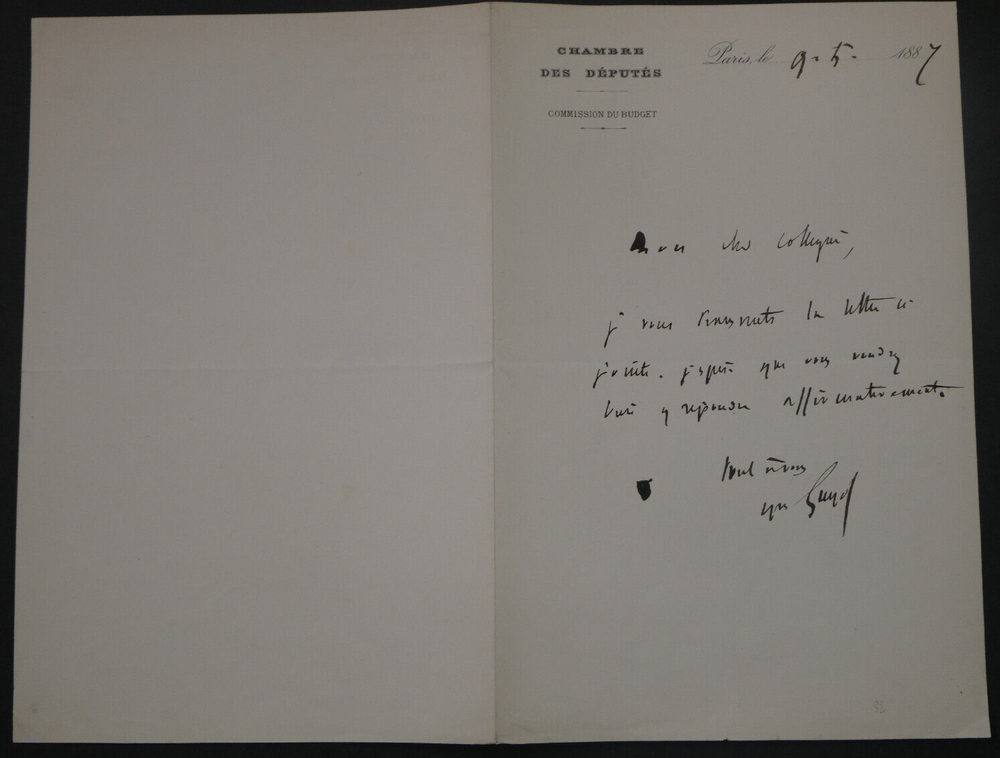 CHAMBRE
DES DÉPUTÉS
COMMISSION DU BUDGET
Paris, le 9-5- 1887
Mon cher collègue,
je vous transmets la lettre ci
jointe. j'espère que vous voudrez
bien y répondre affirmativement.
tout à vous
Yves Guyot